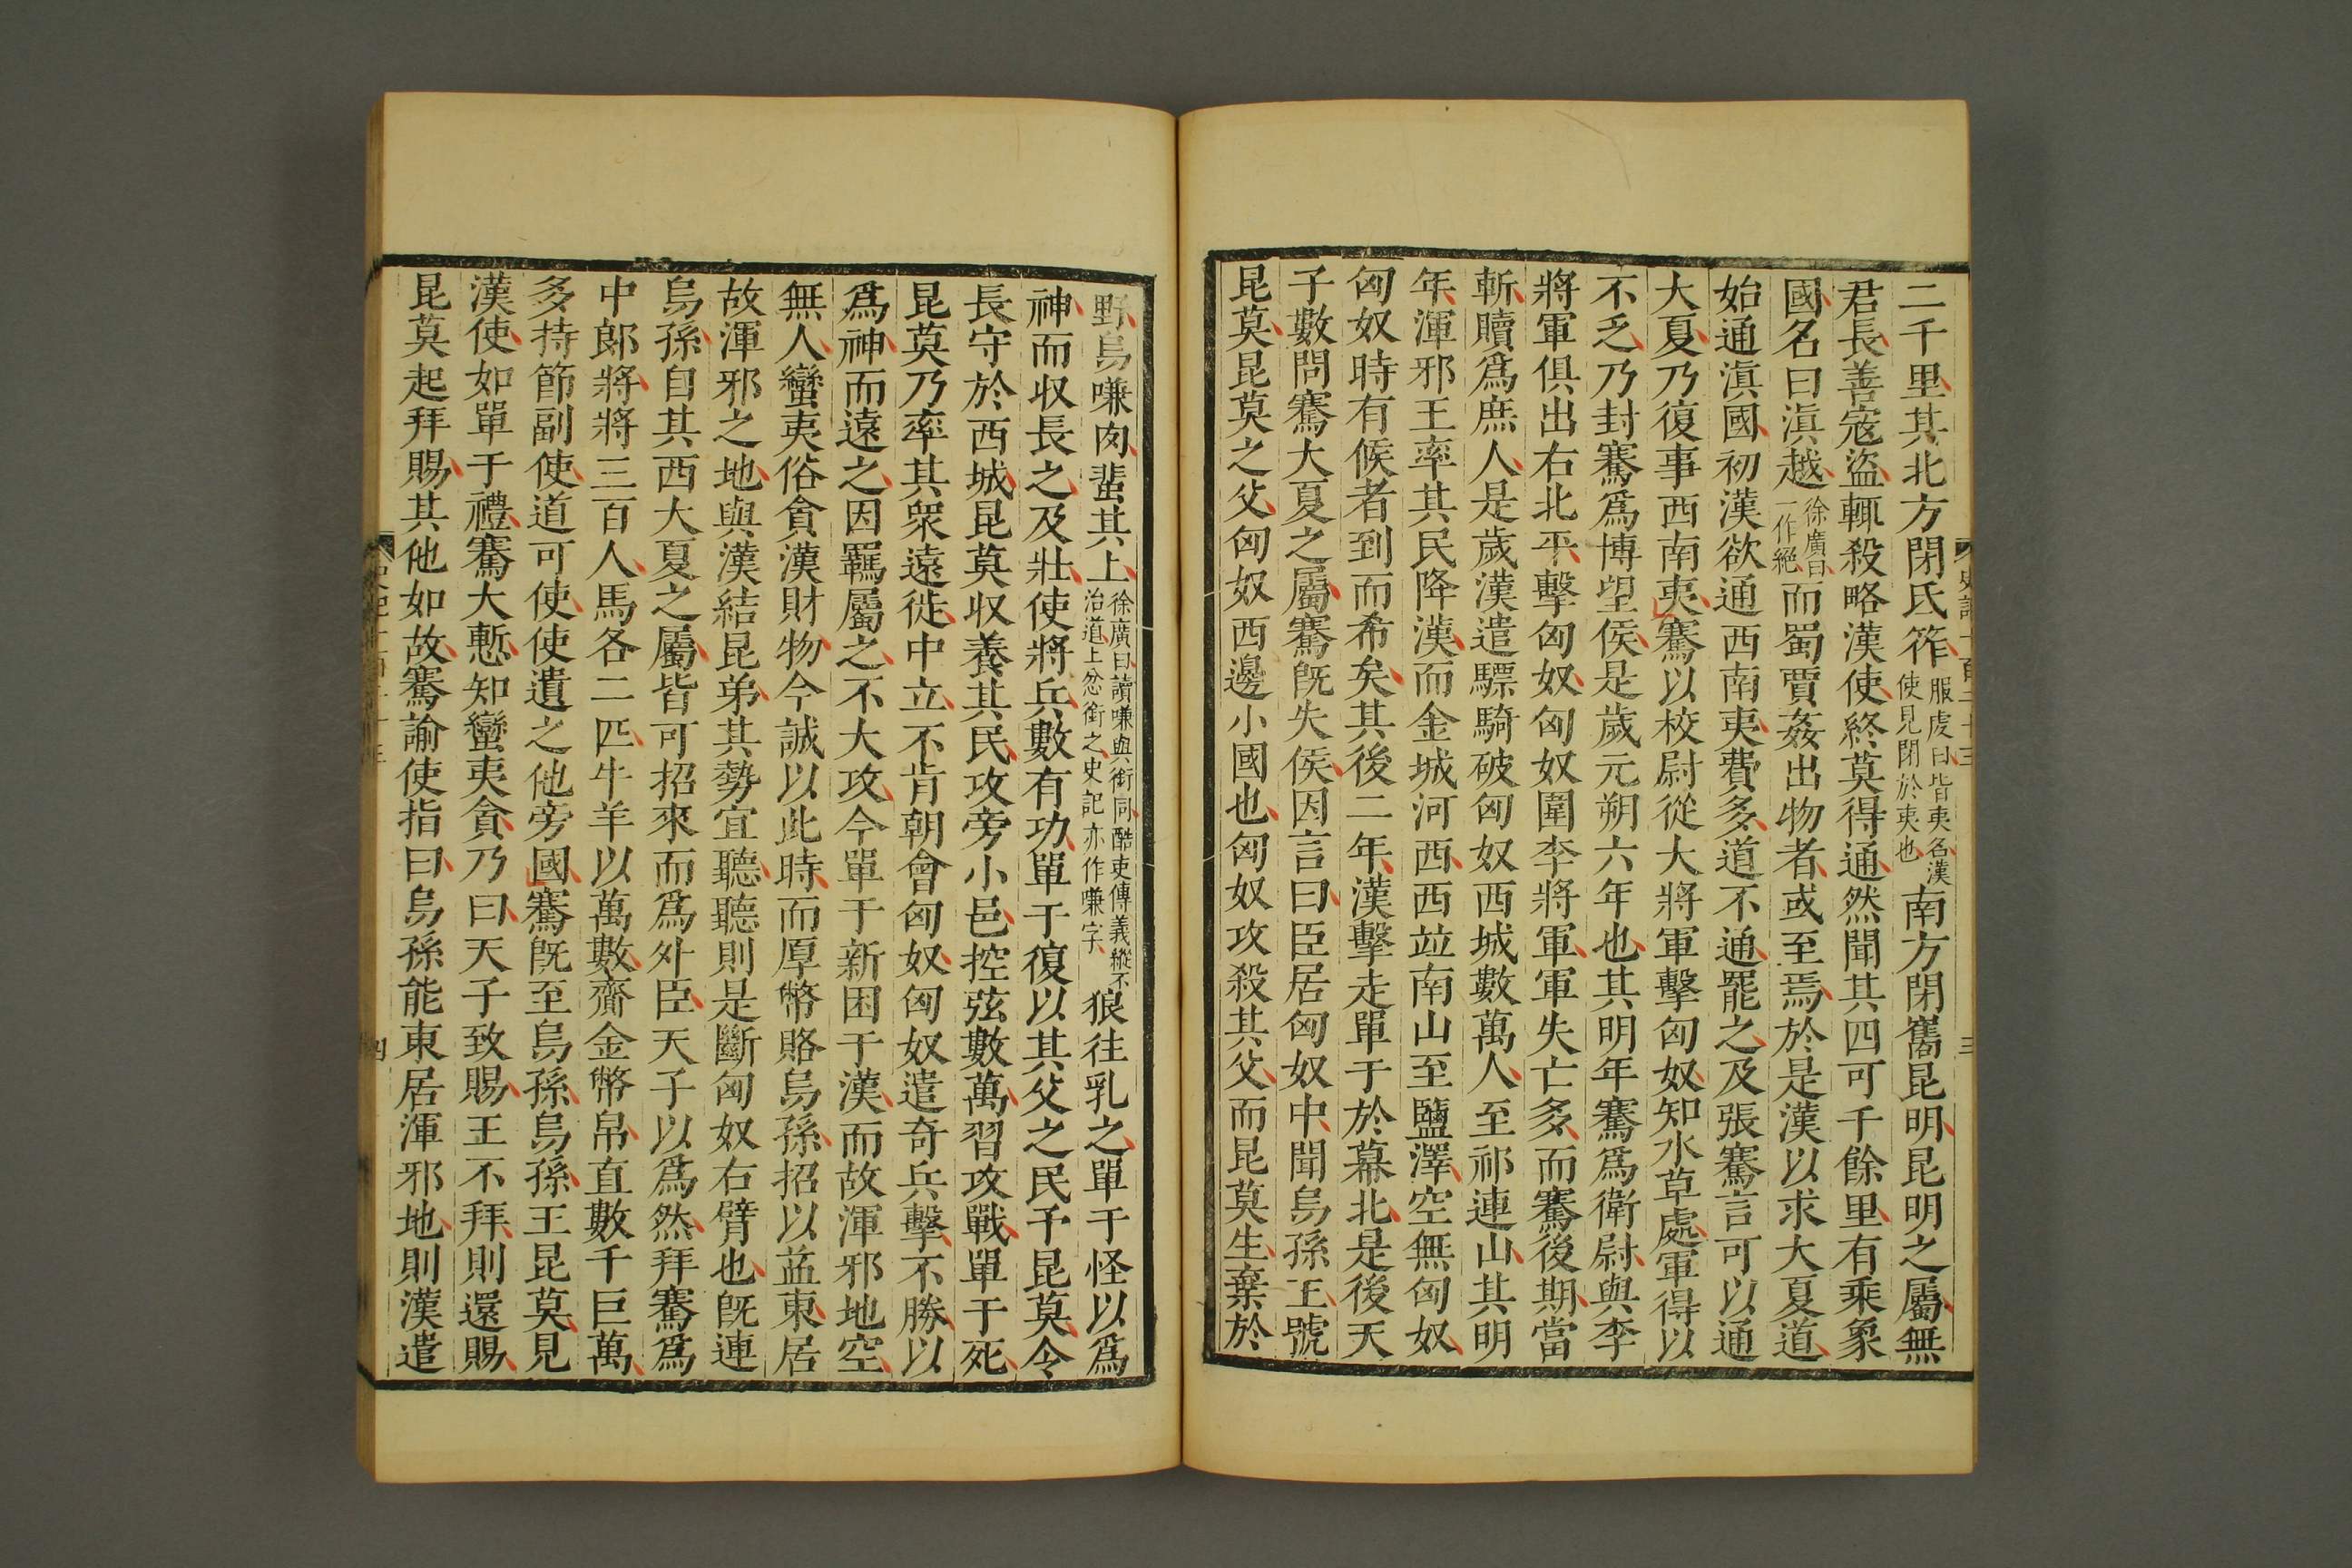 二千里其北方閉氐筰服虔曰皆夷名漢使見閉於夷也南方閉舊昆明昆明之屬無
君長善寇盜輒殺略漢使終莫得通然聞其四可千餘里有乘象
國名曰滇越徐廣曰一作絕而蜀賈姦出物者或至焉於是漢以求大夏道
始通滇國初漢欲通西南夷費多道不通罷之及張騫言可以通
大夏乃復事西南夷騫以校尉從大將軍擊匈奴知水草處軍得以
不乏乃封騫爲博望侯是歲元朔六年也其明年騫爲衛尉與李
將軍俱出右北平擊匈奴匈奴圍李將軍軍失亡多而騫後期當
斬贖爲庶人是歲漢遣驃騎破匈奴西城數萬人至祁連山其明
年渾邪王率其民降漢而金城河西西竝南山至鹽澤空無匈奴
匈奴時有候者到而希矣其後二年漢擊走單于於幕北是後天
子數問騫大夏之屬騫旣失侯因言曰臣居匈奴中聞烏孫王號
昆莫昆莫之父匈奴西邊小國也匈奴攻殺其父而昆莫生棄於
史記一百二十三
三
野烏嗛肉蜚其上徐廣曰讀嗛與銜同酷吏傳義縱不治道上忿銜之史記亦作嗛字狼往乳之單于怪以爲
神而収長之及壯使將兵數有功單于復以其父之民予昆莫令
長守於西城昆莫収養其民攻旁小邑控弦數萬習攻戰單于死
昆莫乃率其衆遠徙中立不肯朝會匈奴匈奴遣奇兵擊不勝以
爲神而遠之因羈屬之不大攻今單于新困于漢而故渾邪地空
無人蠻夷俗貪漢財物今誠以此時而厚幣賂烏孫招以益東居
故渾邪之地與漢結昆弟其勢宜聽聽則是斷匈奴右臂也旣連
烏孫自其西大夏之屬皆可招來而爲外臣天子以爲然拜騫爲
中郎將將三百人馬各二匹牛羊以萬數齎金幣帛直數千巨萬
多持節副使道可使使遺之他旁國騫旣至烏孫烏孫王昆莫見
漢使如單于禮騫大慙知蠻夷貪乃曰天子致賜王不拜則還賜
昆莫起拜賜其他如故騫諭使指曰烏孫能東居渾邪地則漢遣
四